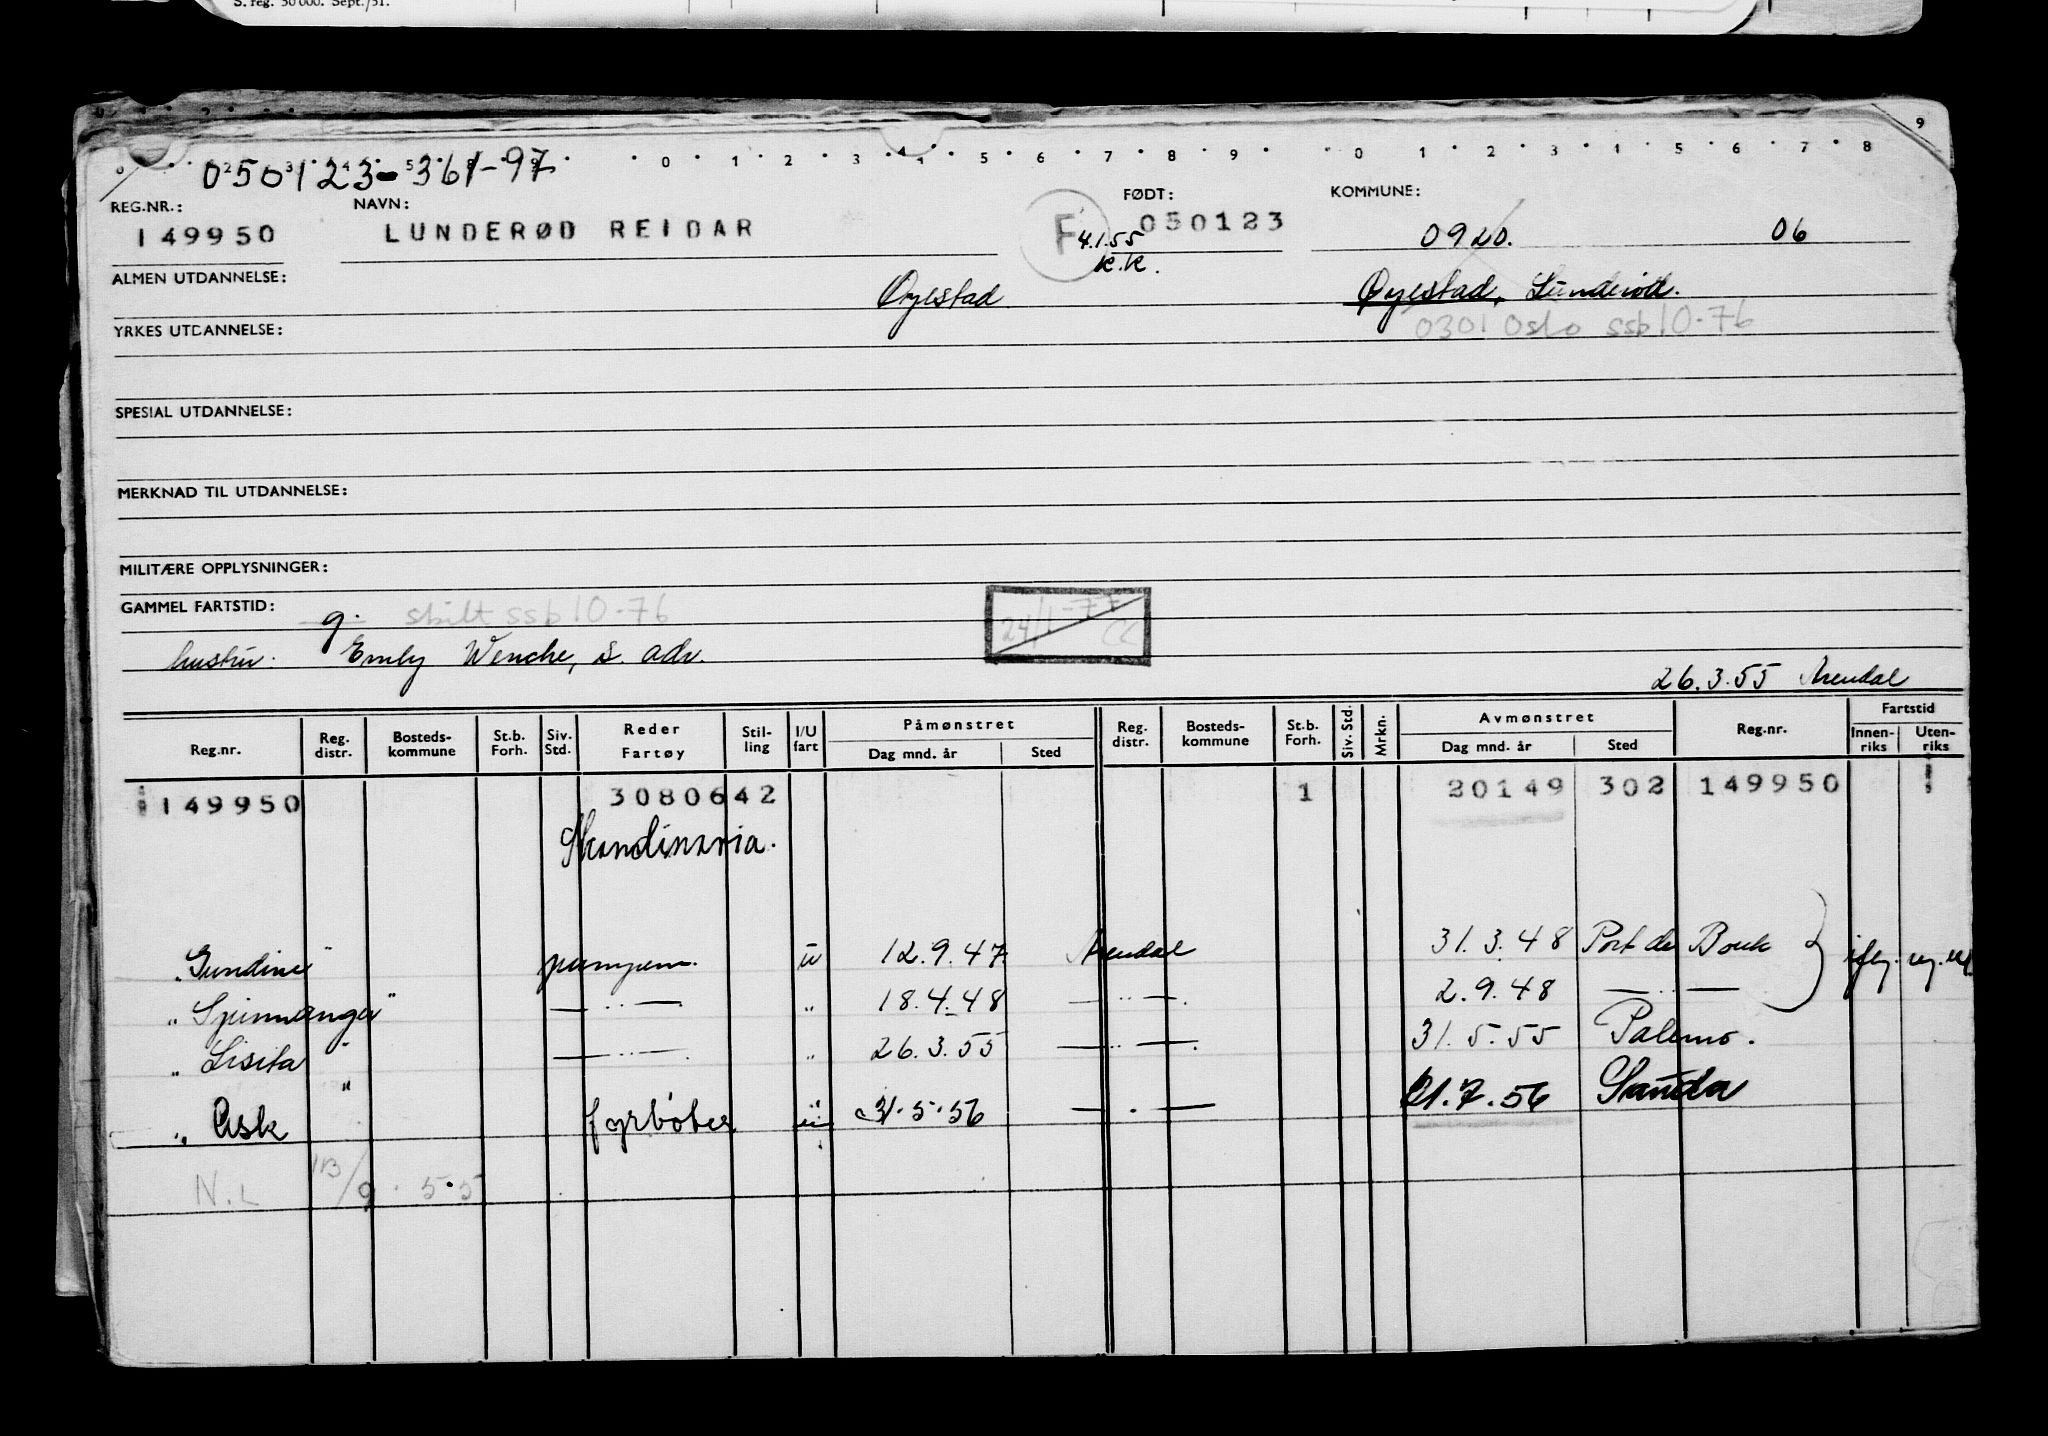 S. reg. 50 000. Sept./51.
9
050123-361-97
0 1 2 3 4 5 6 7 8 9 0 1 2 3 4 5 6 7 8
REG.NR.: NAVN: FØDT: KOMMUNE:
149950 LUNDERØD REIDAR F 4.1.55 K.K. 050123 0920. 06
ALMEN UTDANNELSE: Øyestad Øyestad, Lunderød.
YRKES UTDANNELSE: 0301 Oslo ssb 10-76
SPESIAL UTDANNELSE:
MERKNAD TIL UTDANNELSE:
MILITÆRE OPPLYSNINGER:
GAMMEL FARTSTID: g. skilt ssb 10-76 24/1-77
hustru. Emly Wenche, s. adr.
26.3.55 Arendal
Reg.nr. Reg. distr. Bosteds-kommune St.b. Forh. Siv. Std. Reder Fartøy Stil-ling I/U fart Påmønstret Dag mnd. år Sted Reg. distr. Bosteds-kommune St.b. Forh. Siv. Std. Mrkn. Avmønstret Dag mnd. år Sted Reg.nr. Fartstid Innen-riks Uten-riks
149950 3080642 1 20149 302 149950 1
Skandinavia.
"Gundine" pumpem. u 12.9.47 Arendal 31.3.48 Port de Bouk
"Spinnanger" — " — " 18.4.48 — " — 2.9.48 — " —
"Lisita" — " — " 26.3.55 — " — 31.5.55 Palermo.
"Ask" fyrbøter u 31.5.56 — " — 21.7.56 Sauda
N.L 113/9.55